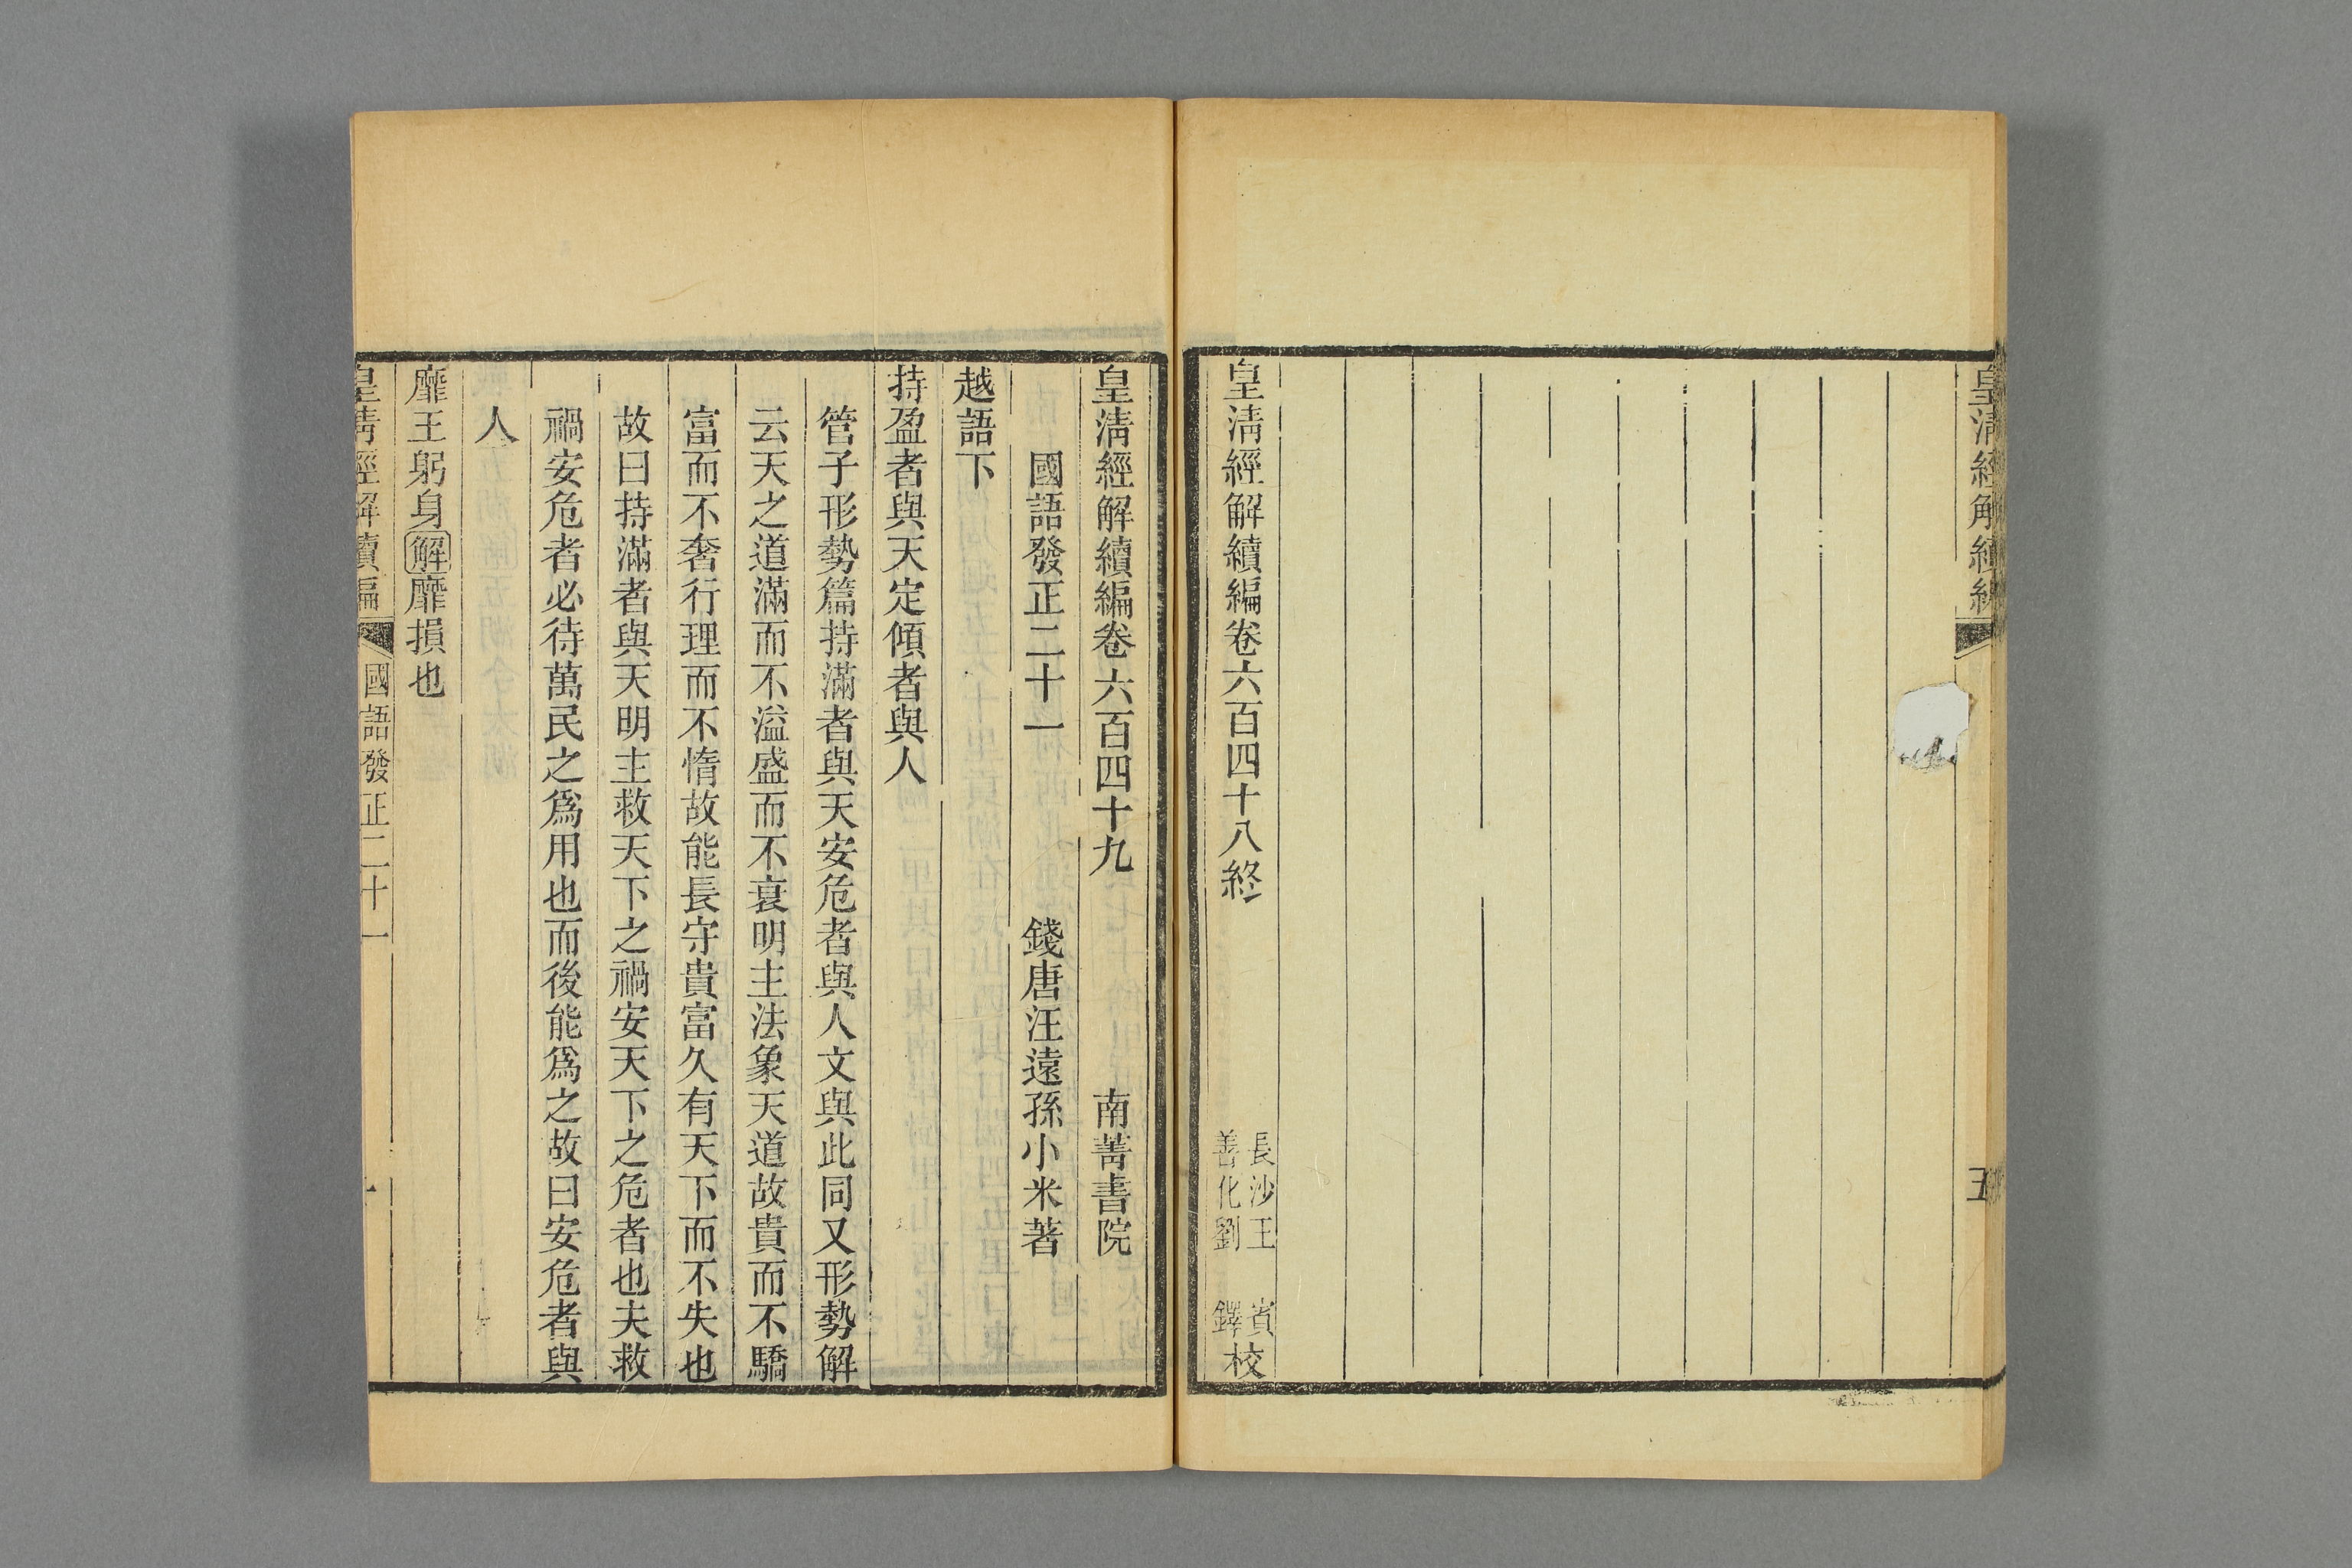 皇清經解續編
五
皇清經解續編卷六百四十八終
長沙王 賓
善化劉 鐸
校
皇清經解續編卷六百四十九 南菁書院
國語發正二十一 錢唐汪遠孫小米著
越語下
持盈者與天定傾者與人
管子形勢篇持滿者與天安危者與人文與此同又形勢解
云天之道滿而不溢盛而不衰明主法象天道故貴而不驕
富而不奢行理而不惰故能長守貴富久有天下而不失也
故曰持滿者與天明主救天下之禍安天下之危者也夫救
禍安危者必待萬民之爲用也而後能爲之故曰安危者與
人
靡王躬身解靡損也
皇清經解續編 國語發正二十一 一